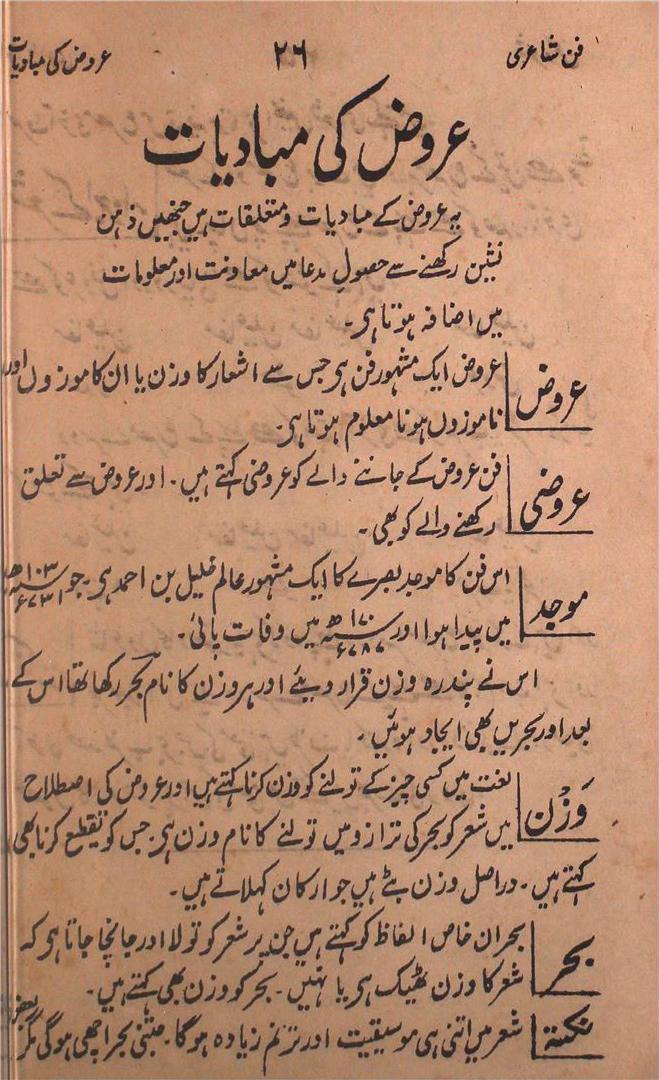 فن شاعری ۲۶ عروض کی مبادیات
عروض کی مبادیات
یہ عروض کے مبادیات و متعلقات ہیں جنھیں ذہن
نشین رکھنے سے حصولِ مدعا میں معاونت اور معلومات
میں اضافہ ہوتا ہی۔
عروض عروض ایک مشہور فن ہی جس سے اشعار کا وزن یا ان کا موزوں اور
ناموزوں ہونا معلوم ہوتا ہی۔
عروضی فن عروض کے جاننے والے کو عروضی کہتے ہیں۔ اور عروض سے تعلق
رکھنے والے کو بھی۔
موجد اس فن کا موجد بصرے کا ایک مشہور عالم خلیل بن احمد ہی۔ جو ۱۰۳ھ
میں پیدا ہوا اور ۱۷۰ھ ۷۸۷ء میں وفات پائی۔
اس نے پندرہ وزن قرار دیئے اور ہر وزن کا نام بحر رکھا تھا اس کے
بعد اور بحریں بھی ایجاد ہوئیں۔
وَزْن لغت میں کسی چیز کے تولنے کو وزن کرنا کہتے ہیں اور عروض کی اصطلاح
میں شعر کو بحر کی ترازو میں تولنے کا نام وزن ہی۔ جس کو تقطیع کرنا بھی
کہتے ہیں۔ دراصل وزن بٹے ہیں جو ارکان کہلاتے ہیں۔
بحر بحر ان خاص الفاظ کو کہتے ہیں جن پر شعر کو تولا اور جانچا جاتا ہی کہ
شعر کا وزن ٹھیک ہی یا نہیں۔ بحر کو وزن بھی کہتے ہیں۔
نکتہ شعر میں اتنی ہی موسیقیت اور ترنم زیادہ ہوگا۔ جتنی بحر اچھی ہوگی مگر بعض